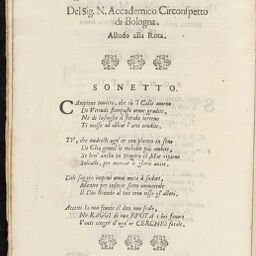 Del Sig. N. Accademico Circonspetto
di Bologna.
Allude alla Rota.
SONETTO.
CAmpione invitto, che sù 'l Calle ameno
Di Virtude stampasti orme gradite,
Ne di lusinghe il florido terreno
Ti mosse ad obliar l'arte erudite,
TU, che nudristi ogn'or con plettro in seno
Di Clio gentil le melodie più
Se ben' anche in straniero il
Solcasti, per mercar le glorie unite.
Deh saggio imponi omai meta à sudori,
Mentre per inserir serto immortale
Il Dio biondo al tuo crin tesse gl'allori.
Accetti la tua fronte il don non frale,
Ne Ricusi di tua RVOTA i bei favori
Vanti cinger d'ogn'or CERCHIO fatale.